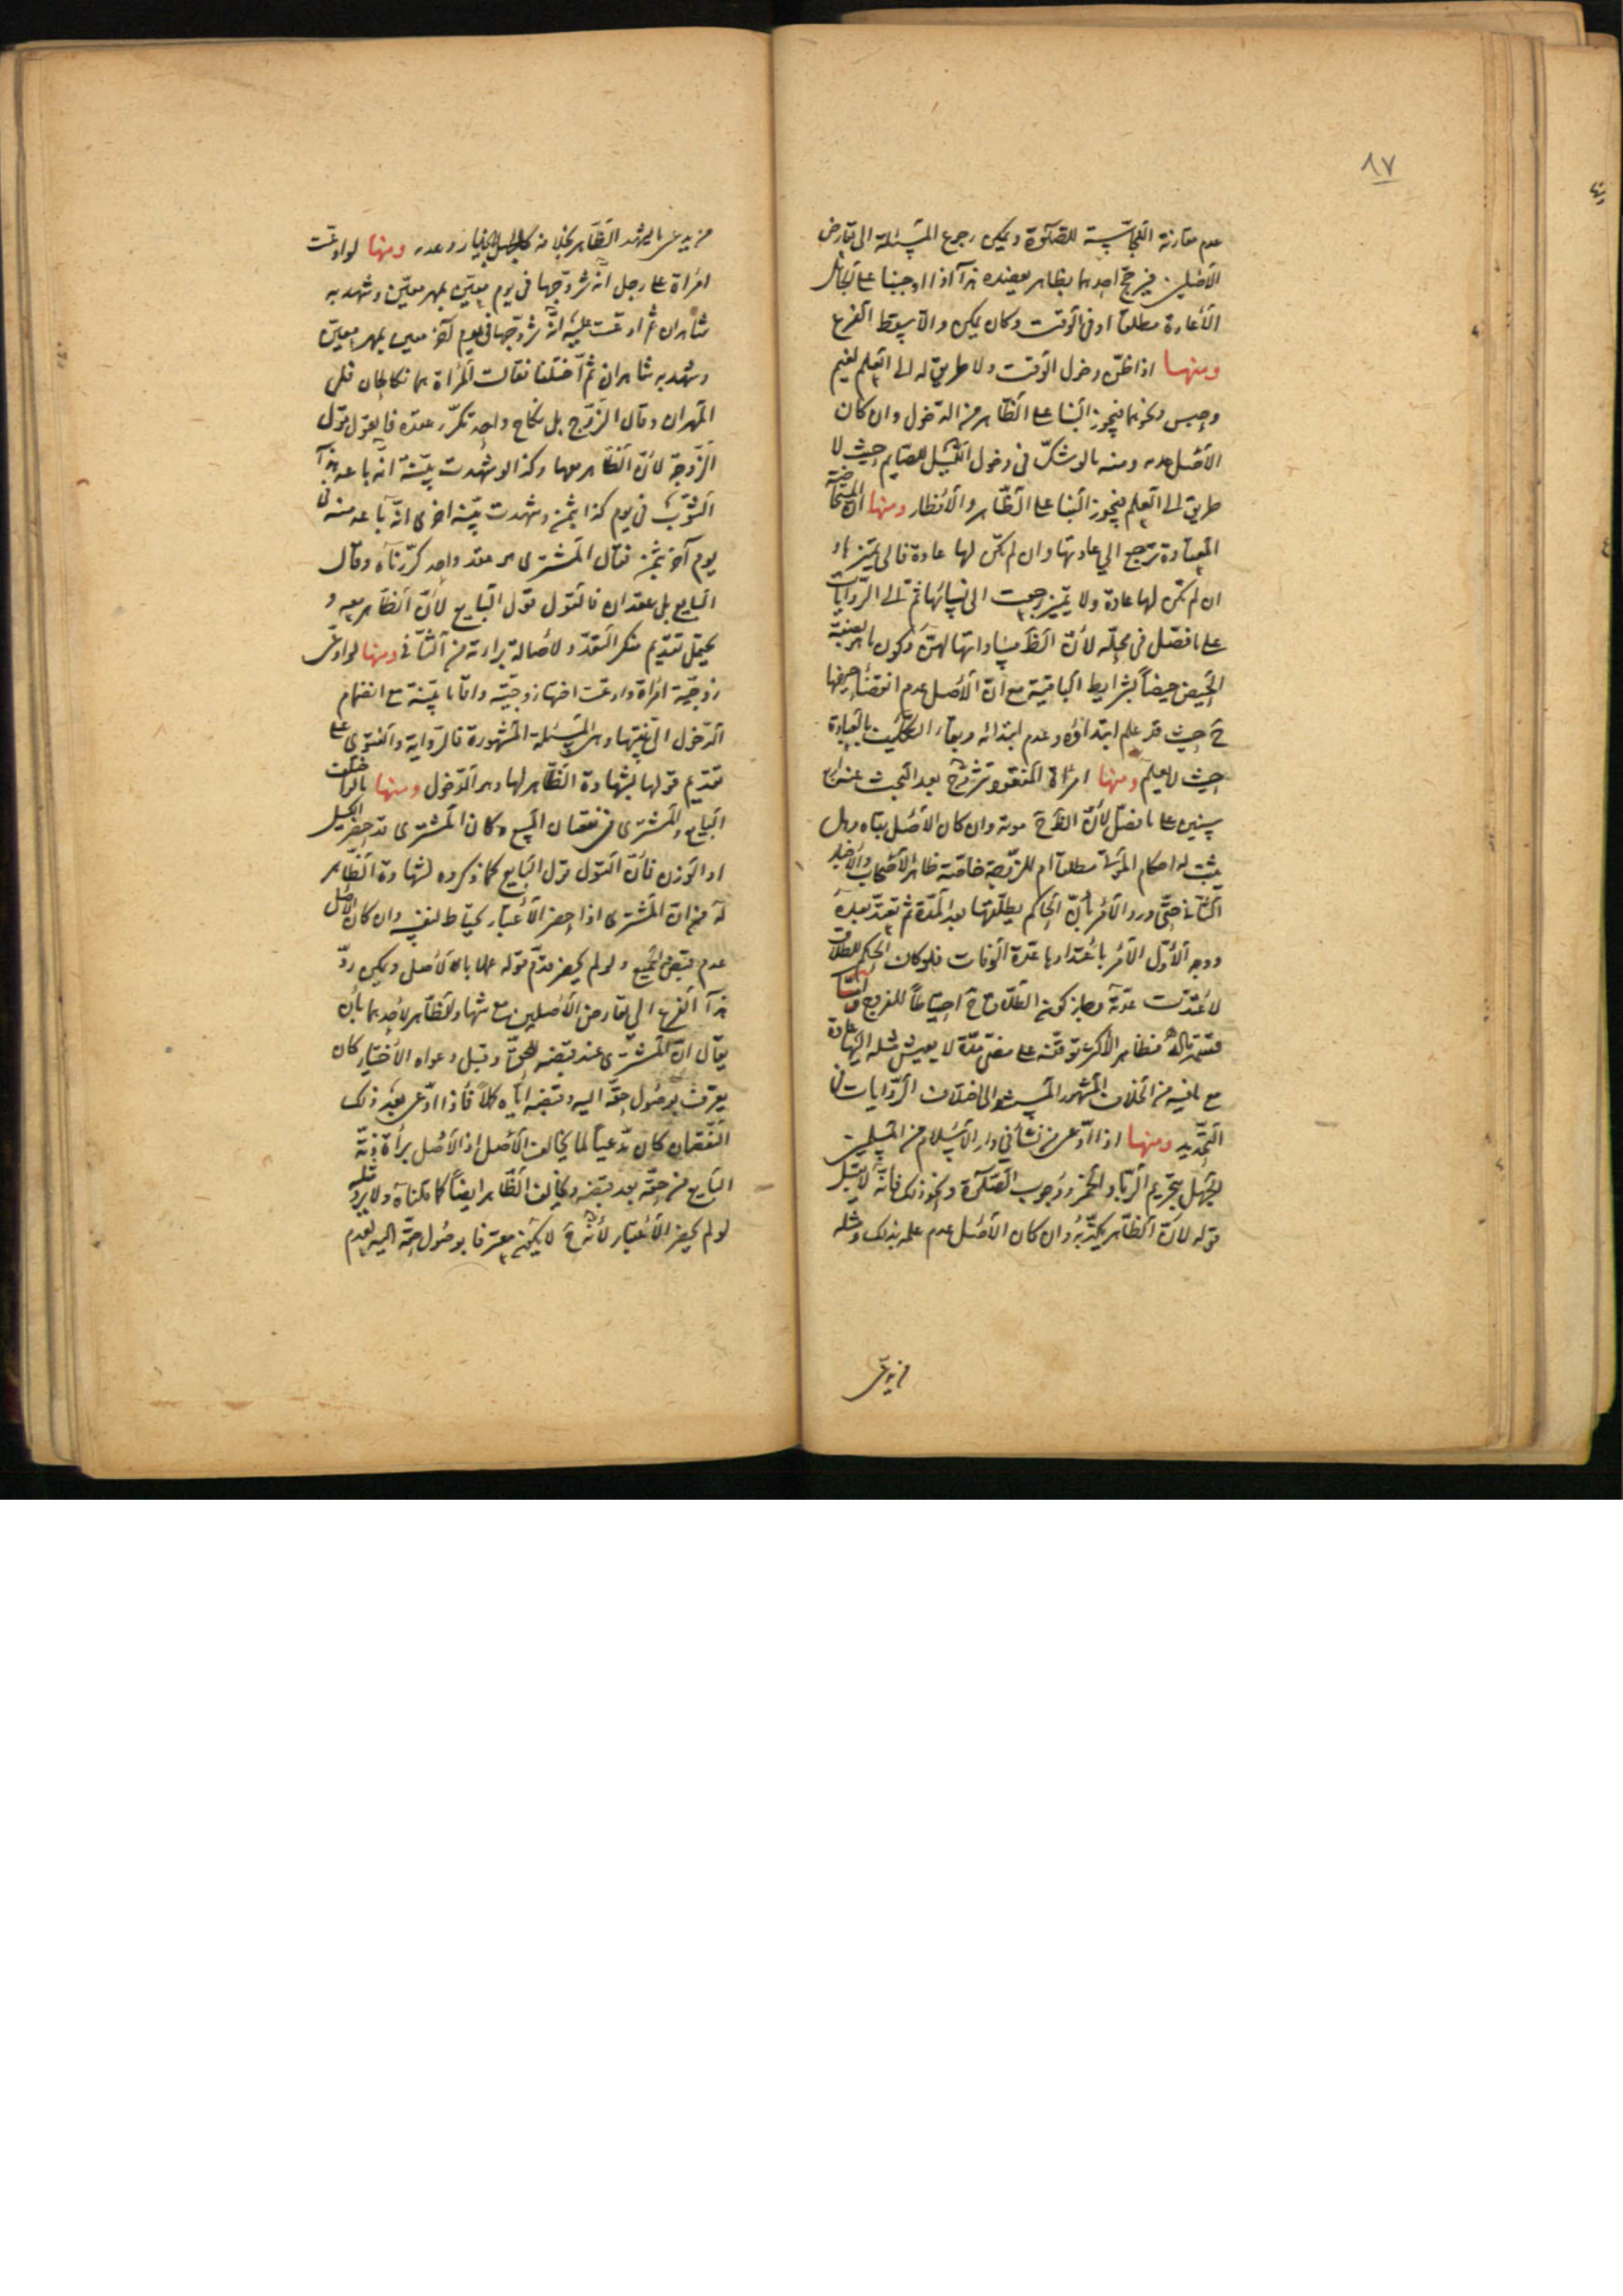 ٨٧
عدم مقارنة النجاسة للصلوة ويمكن رجوع المسئلة الى تعارض
الأصلين فيرجح احدهما بظاهر يعضده هذا اذا اوجبنا على الجاهل
الأعادة مطلقا او فى الوقت وكان يمكن والا يسقط الفرع
ومنها اذا ظن دخول الوقت ولا طريق له الى العلم لغيم
وحبس ونحوهما فيجوز البنا على الظاهر من الدخول وان كان
الأصل عدمه ومنه ما لو شك فى دخول الليل للصايم حيث لا
طريق الى العلم فيجوز البنا على الظاهر والأفطار ومنها ان المستحاضة
المعتادة ترجع الي عادتها وان لم تكن لها عادة فالى تميزها و
ان لم تكن لها عادة ولا تميز رجعت الى نسائها ثم الى الروايات
على ما فصل فى محله لأن الظ مساواتها لهن وكون ما هو بصفة
الحيض حيضاً بشرايط الباقية مع ان الأصل عدم انقضاء حيضها
ح حيث قد علم ابتداؤه وعدم ابتدائه وبقاء التكليف بالعبادة
حيث لا يعلم ومنها امرأة المفقود تتزوج بعد البحث عنه اربع
سنين على ما فصل لأن الظ ح موته وان كان الأصل بقاه وهل
يثبت له احكام الموتى مطلقا ام للزوجة خاصة ظاهر الأصحاب والأخبار
الثانى حتى ورد الأمر بأن الحاكم يطلقها بعد المدة ثم تعتد بعده
ووجه الأول الأمر باعتدادها عدة الوفات فلو كان الحكم للطلاق
لأعتدت عدته وجاز كونه الطلاق ح احتياطاً للفروج واما
قسمة ماله فظاهر الأكثر توقفه على مضى مدة لا يعيش مثله اليها عادة
مع ما فيه من الخلاف المشهور المستند الى اختلاف الروايات فى
التحديد ومنها اذا ادعى من نشأ فى دار الأسلام من المسلمين
الجهل بتحريم الزنا والخمر ووجوب الصلوة ونحو ذلك فانه لا يقبل
قوله لأن الظاهر يكذبه وان كان الأصل عدم علمه بذلك ومثله
من يدعى
من يدعى ما يشهد الظاهر بخلافه كالجهل بالخيار وعدمه ومنها لو ادعت
امرأة على رجل انه تزوجها فى يوم معين بمهر معين وشهد به
شاهدان ثم ادعت عليه انه تزوجها فى يوم آخر معين بمهر معين
وشهد به شاهدان ثم اختلفا فقالت المرأة هما نكاحان فلى
المهران وقال الزوج بل نكاح واحد تكرر عقده فالقول قول
الزوجة لأن الظاهر معها وكذا لو شهدت بينة انه باعه هذا
الثوب فى يوم كذا بثمن وشهدت بينة اخرى انه باعه منه فى
يوم آخر بثمن فقال المشترى هو عقد واحد كررناه وقال
البايع بل عقدان فالقول قول البايع لأن الظاهر معه و
يحتمل تقديم منكر التعدد لأصالة براءته من الثانى ومنها لو ادعى
زوجية امرأة وادعت اختها زوجيته واقاما بينة مع انضمام
الدخول الى بينتها وهى المسئلة المشهورة فالرواية والفتوى على
تقديم قولها لشهادة الظاهر لها وهو الدخول ومنها ما لو اختلف
البايع والمشترى فى نقصان المبيع وكان المشترى قد حضر الكيل
او الوزن فان القول قول البايع كما ذكروه لشهادة الظاهر
له من ان المشترى اذا حضر الأعتبار يحتاط لنفسه وان كان الأصل
عدم قبض الجميع ولو لم يحضر قدم قوله عملا بالأصل ويمكن رد
هذا الفرع الى تعارض الأصلين مع شهادة الظاهر لأحدهما بأن
يقال ان المشترى عند قبضه للحق وقبل دعواه الأختيار كان
يعترف بوصول حقه اليه وقبضه اياه كملاً فاذا ادعى بعد ذلك
النقصان كان مدعياً لما يخالف الأصل اذ الأصل برأة ذمة
البايع من حقه بعد قبضه ويخالف الظاهر ايضاً كما قلناه ولا يرد مثله
لو لم يحضر الأعتبار لأنه ح لا يكون معترفا بوصول حقه اليه لعدم